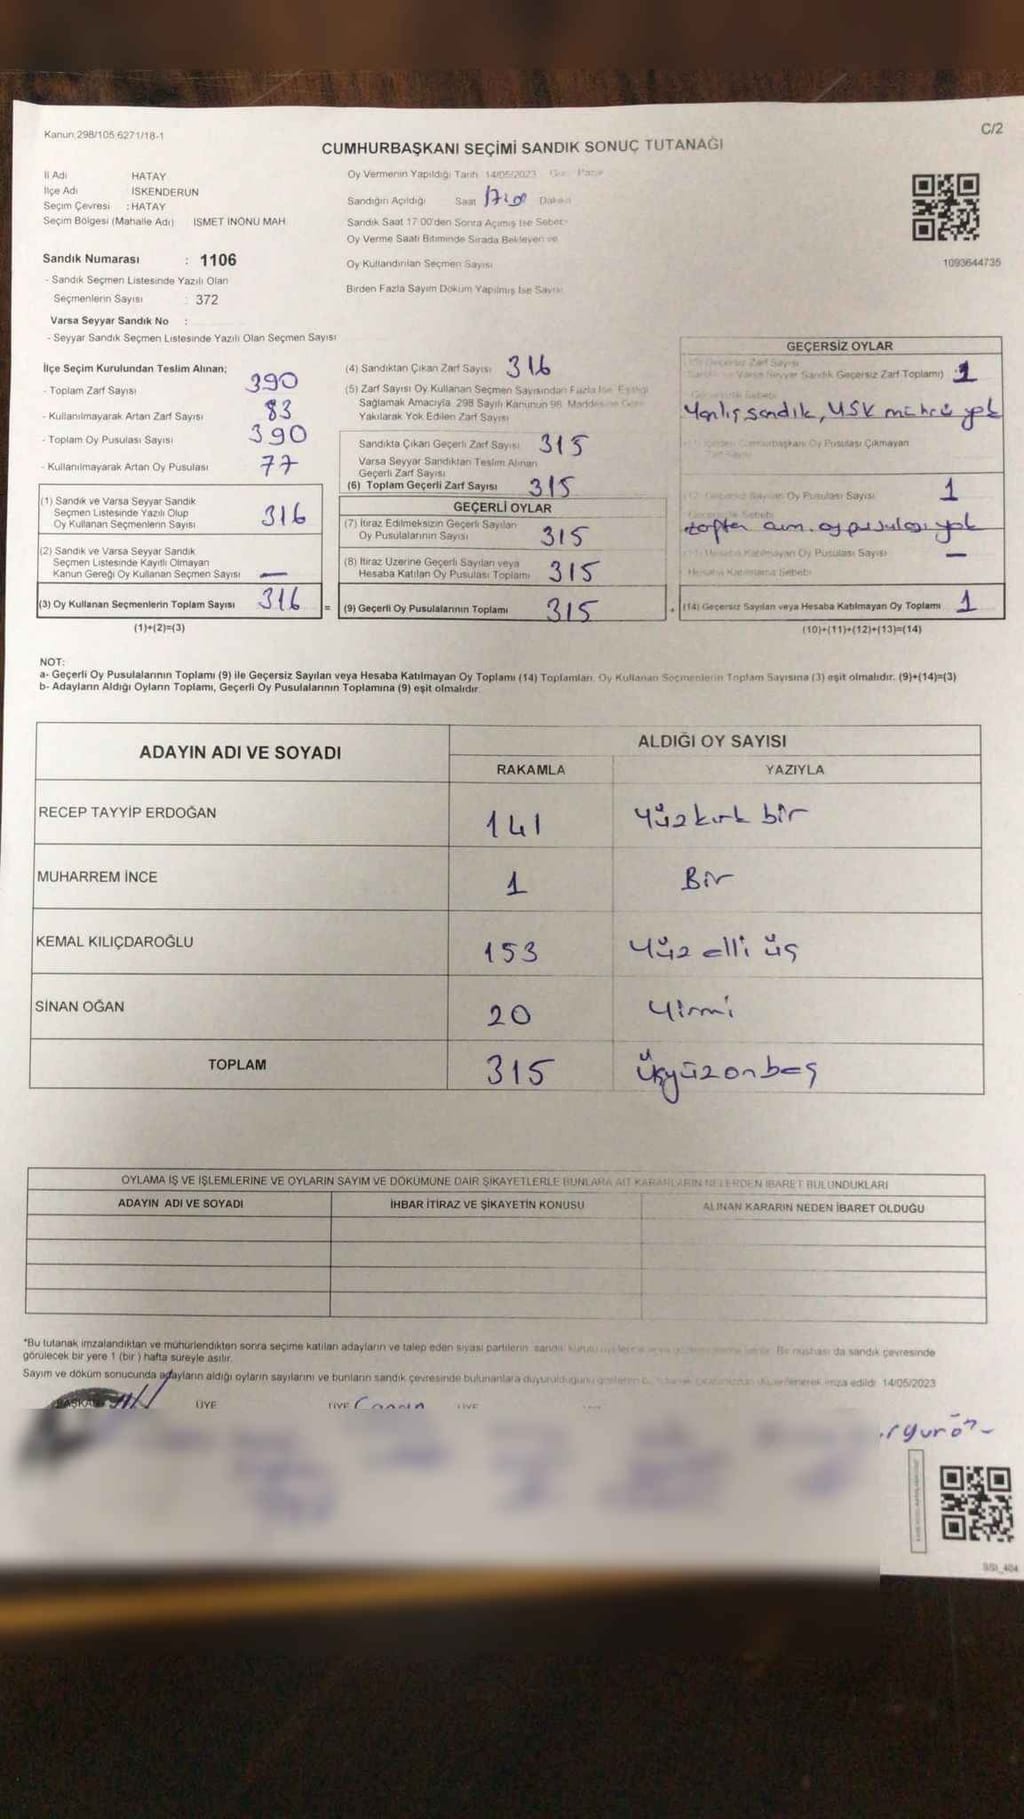 Kanun 298/105,6271/18-1
C/2
CUMHURBAŞKANI SEÇİMİ SANDIK SONUÇ TUTANAĞI
İl Adı HATAY
İlçe Adı İSKENDERUN
Seçim Çevresi : HATAY
Seçim Bölgesi (Mahalle Adı) İSMET İNÖNÜ MAH.
Sandık Numarası : 1106
- Sandık Seçmen Listesinde Yazılı Olan
Seçmenlerin Sayısı : 372
Varsa Seyyar Sandık No :
- Seyyar Sandık Seçmen Listesinde Yazılı Olan Seçmen Sayısı
Oy Vermenin Yapıldığı Tarih 14/05/2023 Pazar
Sandığın Açıldığı Saat Dakika
Sandık Saat 17:00'den Sonra Açımış İse Sebebi
Oy Verme Saati Bitiminde Sırada Bekleyen ve
Oy Kullandırılan Seçmen Sayısı
Birden Fazla Sayım Döküm Yapılmış İse Sayısı
1093644735
İlçe Seçim Kurulundan Teslim Alınan;
- Toplam Zarf Sayısı 390
- Kullanılmayarak Artan Zarf Sayısı 83
- Toplam Oy Pusulası Sayısı 390
- Kullanılmayarak Artan Oy Pusulası 77
(1) Sandık ve Varsa Seyyar Sandık
Seçmen Listesinde Yazılı Olup
Oy Kullanan Seçmenlerin Sayısı 316
(2) Sandık ve Varsa Seyyar Sandık
Seçmen Listesinde Kayıtlı Olmayan
Kanun Gereği Oy Kullanan Seçmen Sayısı —
(3) Oy Kullanan Seçmenlerin Toplam Sayısı 316 =
(1)+(2)=(3)
(4) Sandıktan Çıkan Zarf Sayısı 316
(5) Zarf Sayısı Oy Kullanan Seçmen Sayısından Fazla İse, Eşitliği
Sağlamak Amacıyla 298 Sayılı Kanunun 98. Maddesine Göre
Yakılarak Yok Edilen Zarf Sayısı
Sandıkta Çıkan Geçerli Zarf Sayısı 315
Varsa Seyyar Sandıktan Teslim Alınan
Geçerli Zarf Sayısı
(6) Toplam Geçerli Zarf Sayısı 315
GEÇERLİ OYLAR
(7) İtiraz Edilmeksizin Geçerli Sayılan
Oy Pusulalarının Sayısı 315
(8) İtiraz Üzerine Geçerli Sayılan veya
Hesaba Katılan Oy Pusulası Toplamı 315
(9) Geçerli Oy Pusulalarının Toplamı 315 +
GEÇERSİZ OYLAR
(10) Geçersiz Zarf Sayısı
(Sandık ve Varsa Seyyar Sandık Geçersiz Zarf Toplamı) 1
Geçersizlik Sebebi
Yanlış sandık, YSK mührü yok
(11) İçinden Cumhurbaşkanı Oy Pusulası Çıkmayan
Zarf Sayısı
(12) Geçersiz Sayılan Oy Pusulası Sayısı 1
Geçersizlik Sebebi
zarftan cum. oy pusulası yok
(13) Hesaba Katılmayan Oy Pusulası Sayısı —
Hesaba Katılmama Sebebi
(14) Geçersiz Sayılan veya Hesaba Katılmayan Oy Toplamı 1
(10)+(11)+(12)+(13)=(14)
NOT:
a- Geçerli Oy Pusulalarının Toplamı (9) ile Geçersiz Sayılan veya Hesaba Katılmayan Oy Toplamı (14) Toplamları, Oy Kullanan Seçmenlerin Toplam Sayısına (3) eşit olmalıdır. (9)+(14)=(3)
b- Adayların Aldığı Oyların Toplamı, Geçerli Oy Pusulalarının Toplamına (9) eşit olmalıdır.
ADAYIN ADI VE SOYADI
ALDIĞI OY SAYISI
RAKAMLA YAZIYLA
RECEP TAYYİP ERDOĞAN 141 Yüzkırk bir
MUHARREM İNCE 1 Bir
KEMAL KILIÇDAROĞLU 153 Yüz elli üç
SİNAN OĞAN 20 Yirmi
TOPLAM 315 Üçyüzonbeş
OYLAMA İŞ VE İŞLEMLERİNE VE OYLARIN SAYIM VE DÖKÜMÜNE DAİR ŞİKAYETLERLE BUNLARA AİT KARARLARIN NELERDEN İBARET BULUNDUKLARI
ADAYIN ADI VE SOYADI İHBAR İTİRAZ VE ŞİKAYETİN KONUSU ALINAN KARARIN NEDEN İBARET OLDUĞU
*Bu tutanak imzalandıktan ve mühürlendikten sonra seçime katılan adayların ve talep eden siyasi partilerin sandık Bir nüshası da sandık çevresinde
görülecek bir yere 1 (bir) hafta süreyle asılır.
Sayım ve döküm sonucunda adayların aldığı oyların sayılarını ve bunların sandık çevresinde bulunanlara duyurulduğunu gösteren düzenlenerek imza edildi 14/05/2023
BAŞKAN ÜYE ÜYE ÜYE